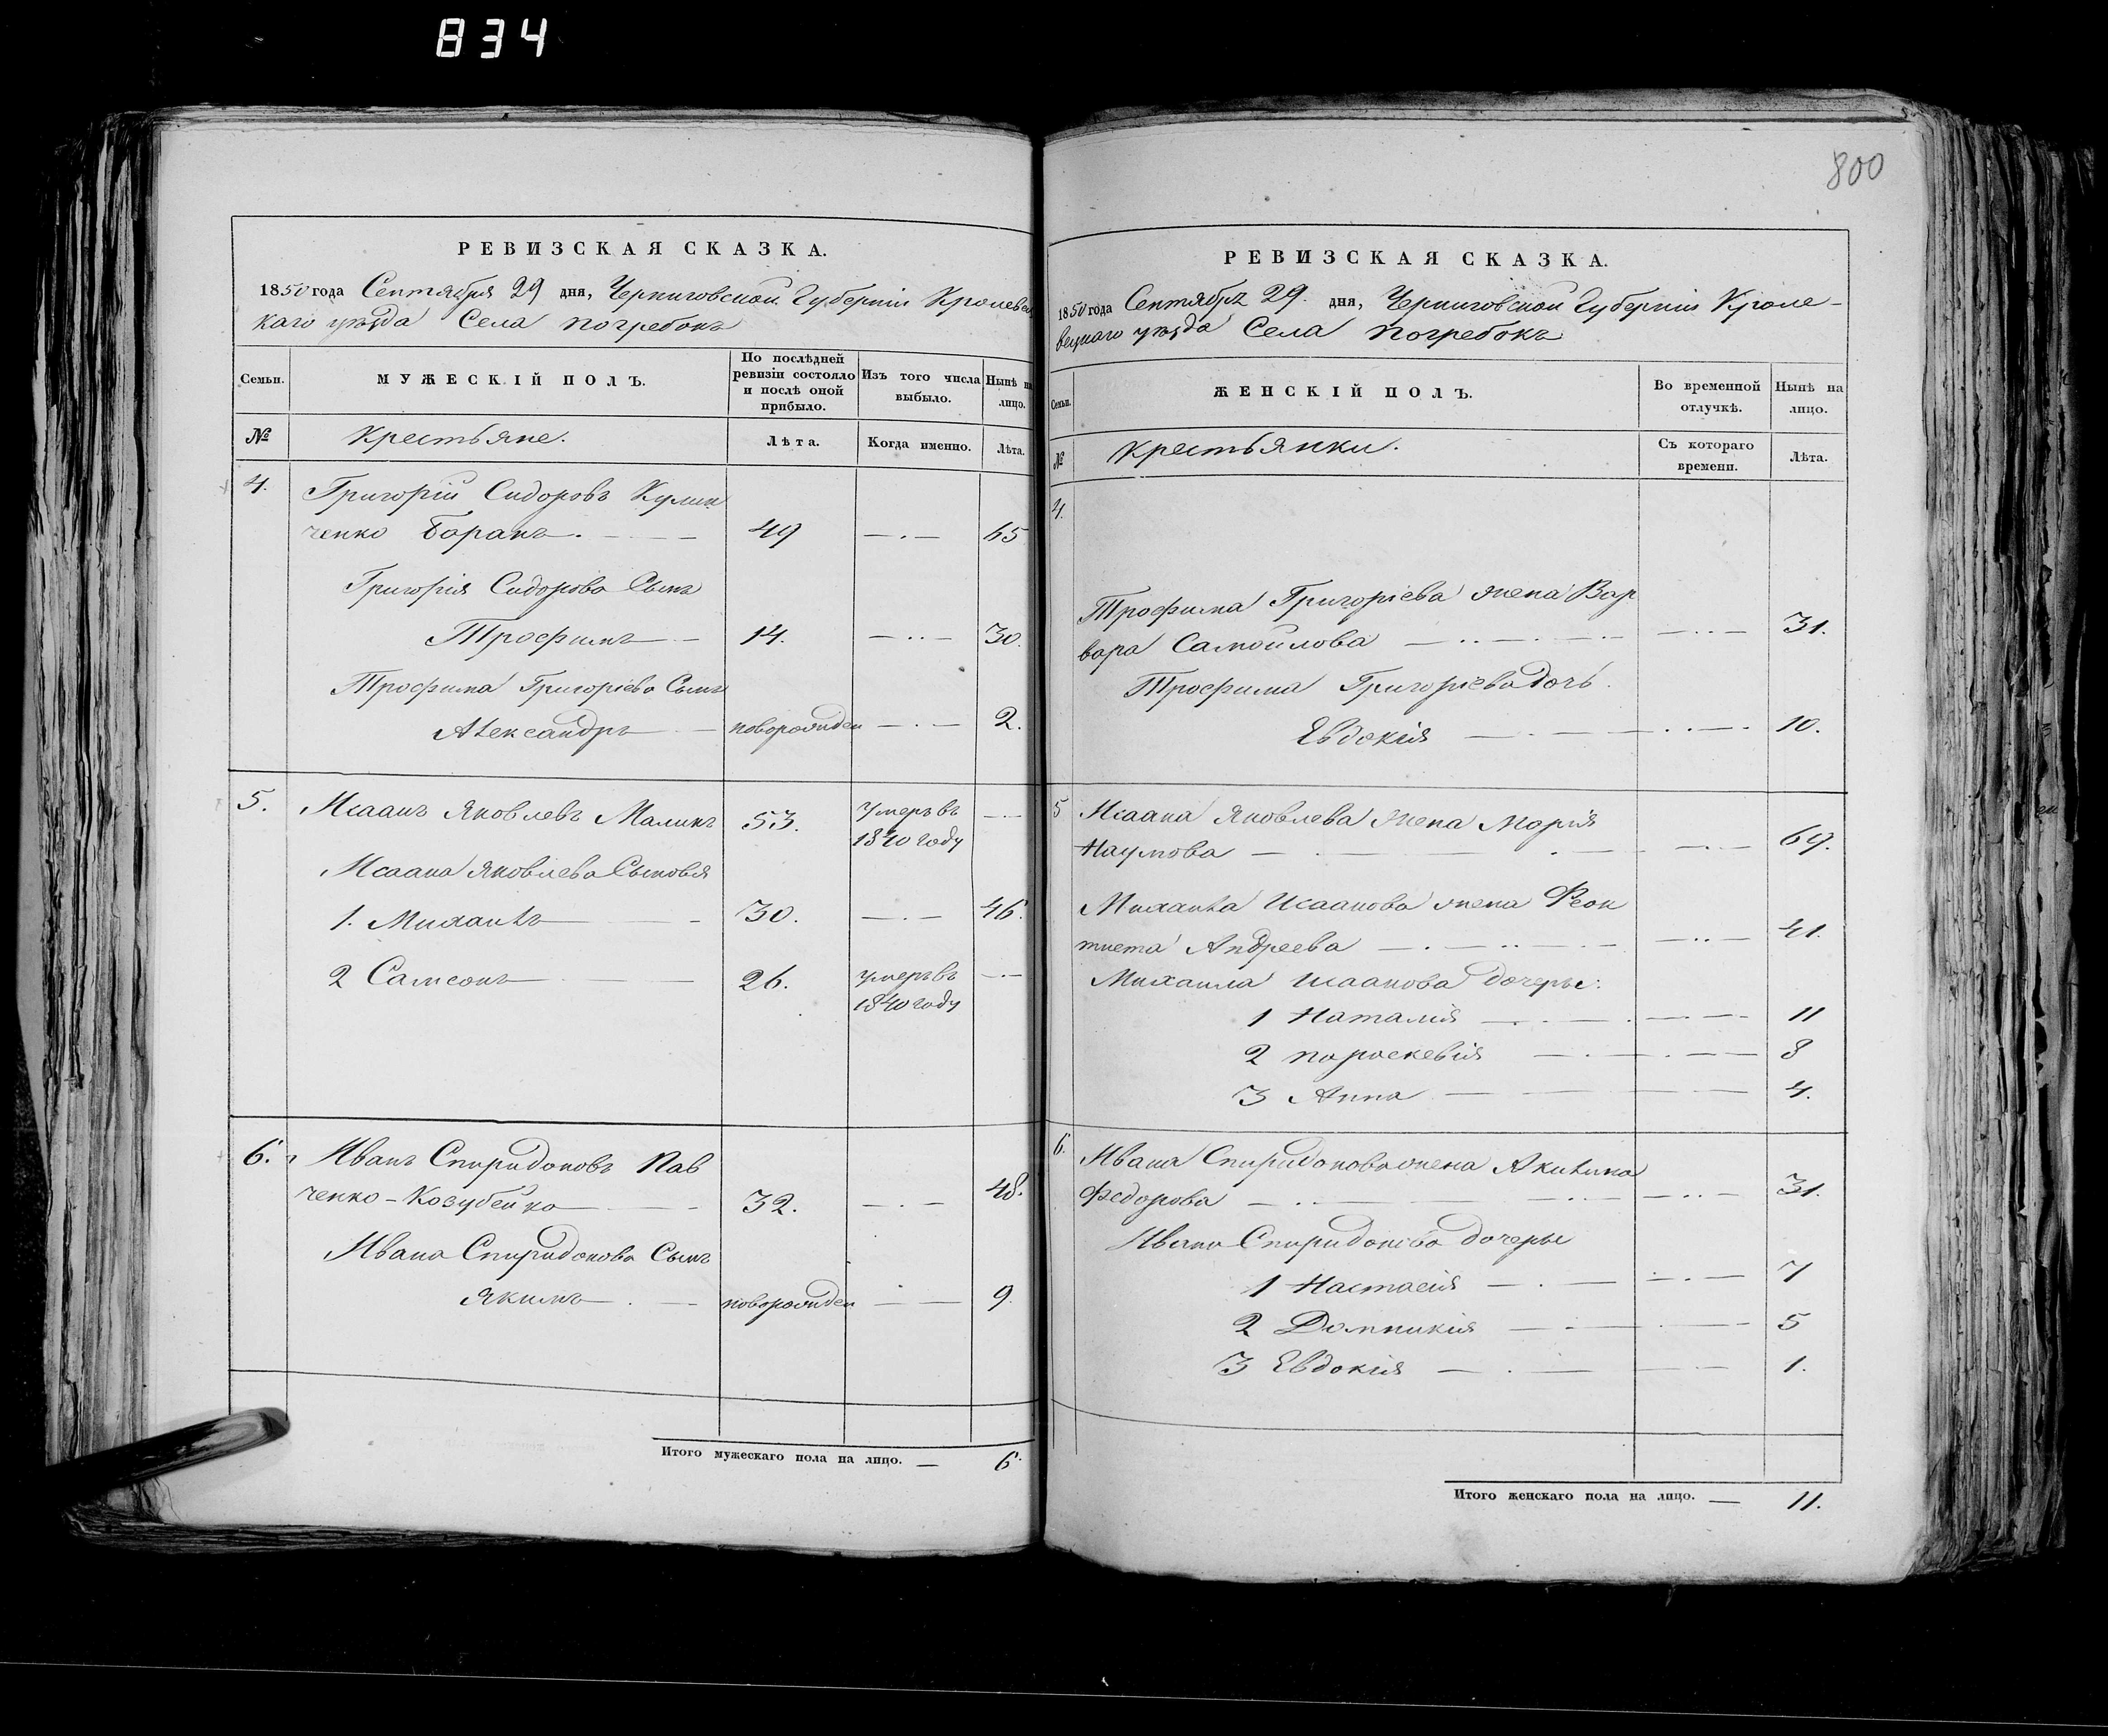 834
800
РЕВИЗСКАЯ СКАЗКА.
1850 года Сентября 29 дня, Черниговской Губерніи Кролевец
каго уѣзда Села Погребокъ
Семьи. МУЖЕСКІЙ ПОЛЪ. По послѣдней ревизіи состояло и послѣ оной прибыло. Изъ того числа выбыло. Нынѣ на лицо.
№ Крестьяне. Лѣта. Когда именно. Лѣта.
4. Григорій Сидоровъ Кулин
ченко Баранъ. 49 65
Григорія Сидорова Сынъ
Трофимъ 14. 30.
Трофима Григоріева Сынъ
Александръ новорожден 2.
5. Исаакъ Яковлевъ Маликъ 53. умеръ въ
1840 году
Исаака Яковлева Сыновья
1. Михаилъ 30. 46.
2 Самсонъ 26. умеръ въ
1840 году
6. Иванъ Спиридоновъ Пав
ченко-Козубейко 32. 48.
Ивана Спиридонова Сынъ
Якимъ новорожден 9.
Итого мужескаго пола на лицо. 6.
РЕВИЗСКАЯ СКАЗКА.
1850 года Сентября 29. дня, Черниговской Губерніи Кроле-
вецкаго уѣзда Села Погребокъ
Семьи. ЖЕНСКІЙ ПОЛЪ. Во временной отлучкѣ. Нынѣ на лицо.
№ Крестьянки. Съ котораго времени. Лѣта.
4.
Трофима Григоріева жена Вар
вара Самойлова 31.
Трофима Григоріева дочь.
Евдокія 10.
5 Исаака Яковлева жена Марія
Наумова 69.
Михаила Исаакова жена Феок
тиста Андреева 41.
Михаила Исаакова дочеры:
1 Наталія 11
2 Параскевія 8
3 Анна 4.
6. Ивана Спиридонова жена Акилина
Федорова 31.
Ивана Спиридонова дочеры
1 Настасія 7
2 Домникія 5
3 Евдокія 1.
Итого женскаго пола на лицо. 11.